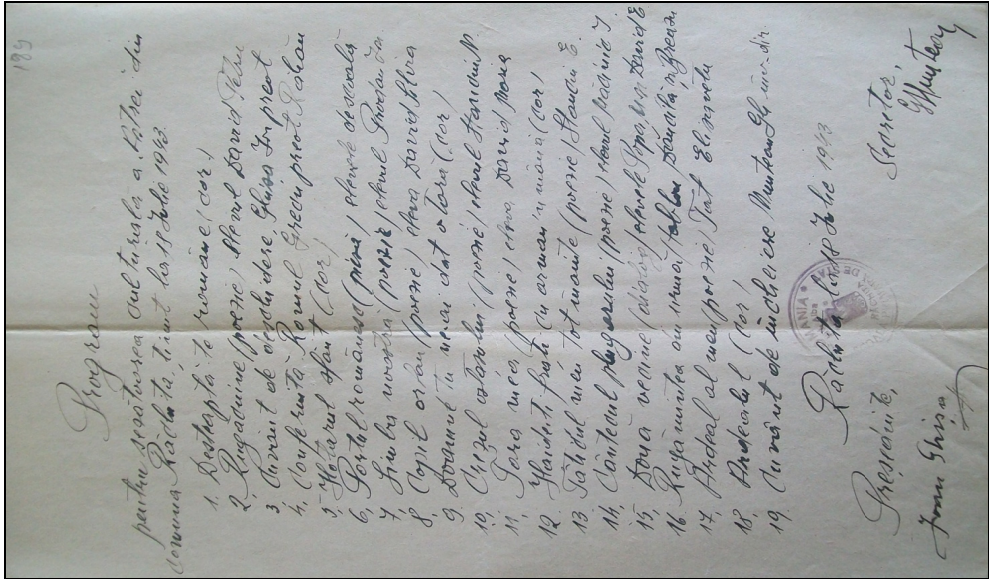 189
Program
pentru șezătoarea culturală a Astrei din
comuna Răchita, ținut la 18 Iulie 1943.
1. Deșteaptă-te române (cor)
2. Rugăciune (poezie) elevul David Petru
3. Cuvânt de deschidere, Ghișa I. preot
4. Conferință Romul Grecu preot Răhău
5. Hotarul sfânt (cor)
6. Portul românesc (piesă) elevele de școală
7. Limba noastră (poezie) elevul
8. Copil orfan (poezie) eleva David Silvia
9. Doamne tu ne-ai dat olora (cor)
10. Crezul ostașului (poezie) elevul Stanciu N.
11. Țara mea (poezie) eleva David Mora
12. Haideți frați cu aman în mână (cor)
13. Tăticul meu tot moarte (poezie) Stanciu E.
14. Cântecul plugarului (poezie) elevul Păcurie I.
15. Două vecine (dialog) elevele David E
16. Rugămintea din urmă,
17. Ardeal al meu poezie, Tut Elisaveta
18. Ardealul (cor)
19. Cuvânt de închiere Munteanu Gh. înv. dir.
Răchita la 18 Iulie 1943
Președinte, Secretar,
Ioan Ghișa GMunteanu